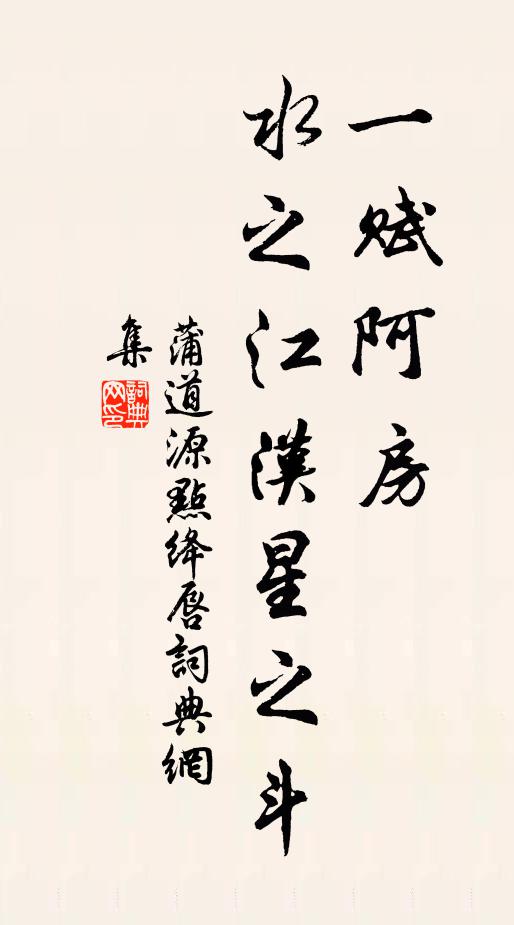 一賦阿房
水之江漢星之斗
蒲道源點絳唇詞典網
集
詞典網印